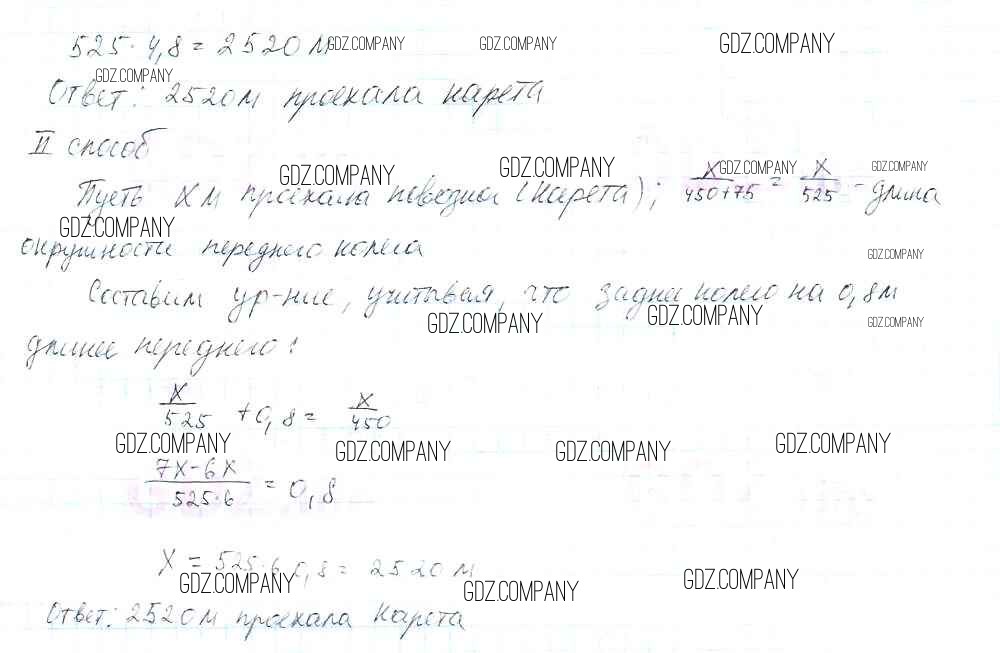 525 · 4,8 = 2520 м GDZ.COMPANY GDZ.COMPANY GDZ.COMPANY
GDZ.COMPANY
Ответ: 2520 м проехала карета
II способ
GDZ.COMPANY GDZ.COMPANY GDZ.COMPANY GDZ.COMPANY
Пусть X м проехала повозка (карета); X/(450+75) = X/525 - длина
GDZ.COMPANY
окружности переднего колеса GDZ.COMPANY
Составим ур-ние, учитывая, что заднее колесо на 0,8 м
GDZ.COMPANY GDZ.COMPANY GDZ.COMPANY
длинее переднего:
X/525 + 0,8 = X/450
GDZ.COMPANY GDZ.COMPANY GDZ.COMPANY GDZ.COMPANY
(7X-6X)/(525·6) = 0,8
X = 525·6·0,8 = 2520 м
GDZ.COMPANY GDZ.COMPANY GDZ.COMPANY
Ответ: 2520 м проехала карета